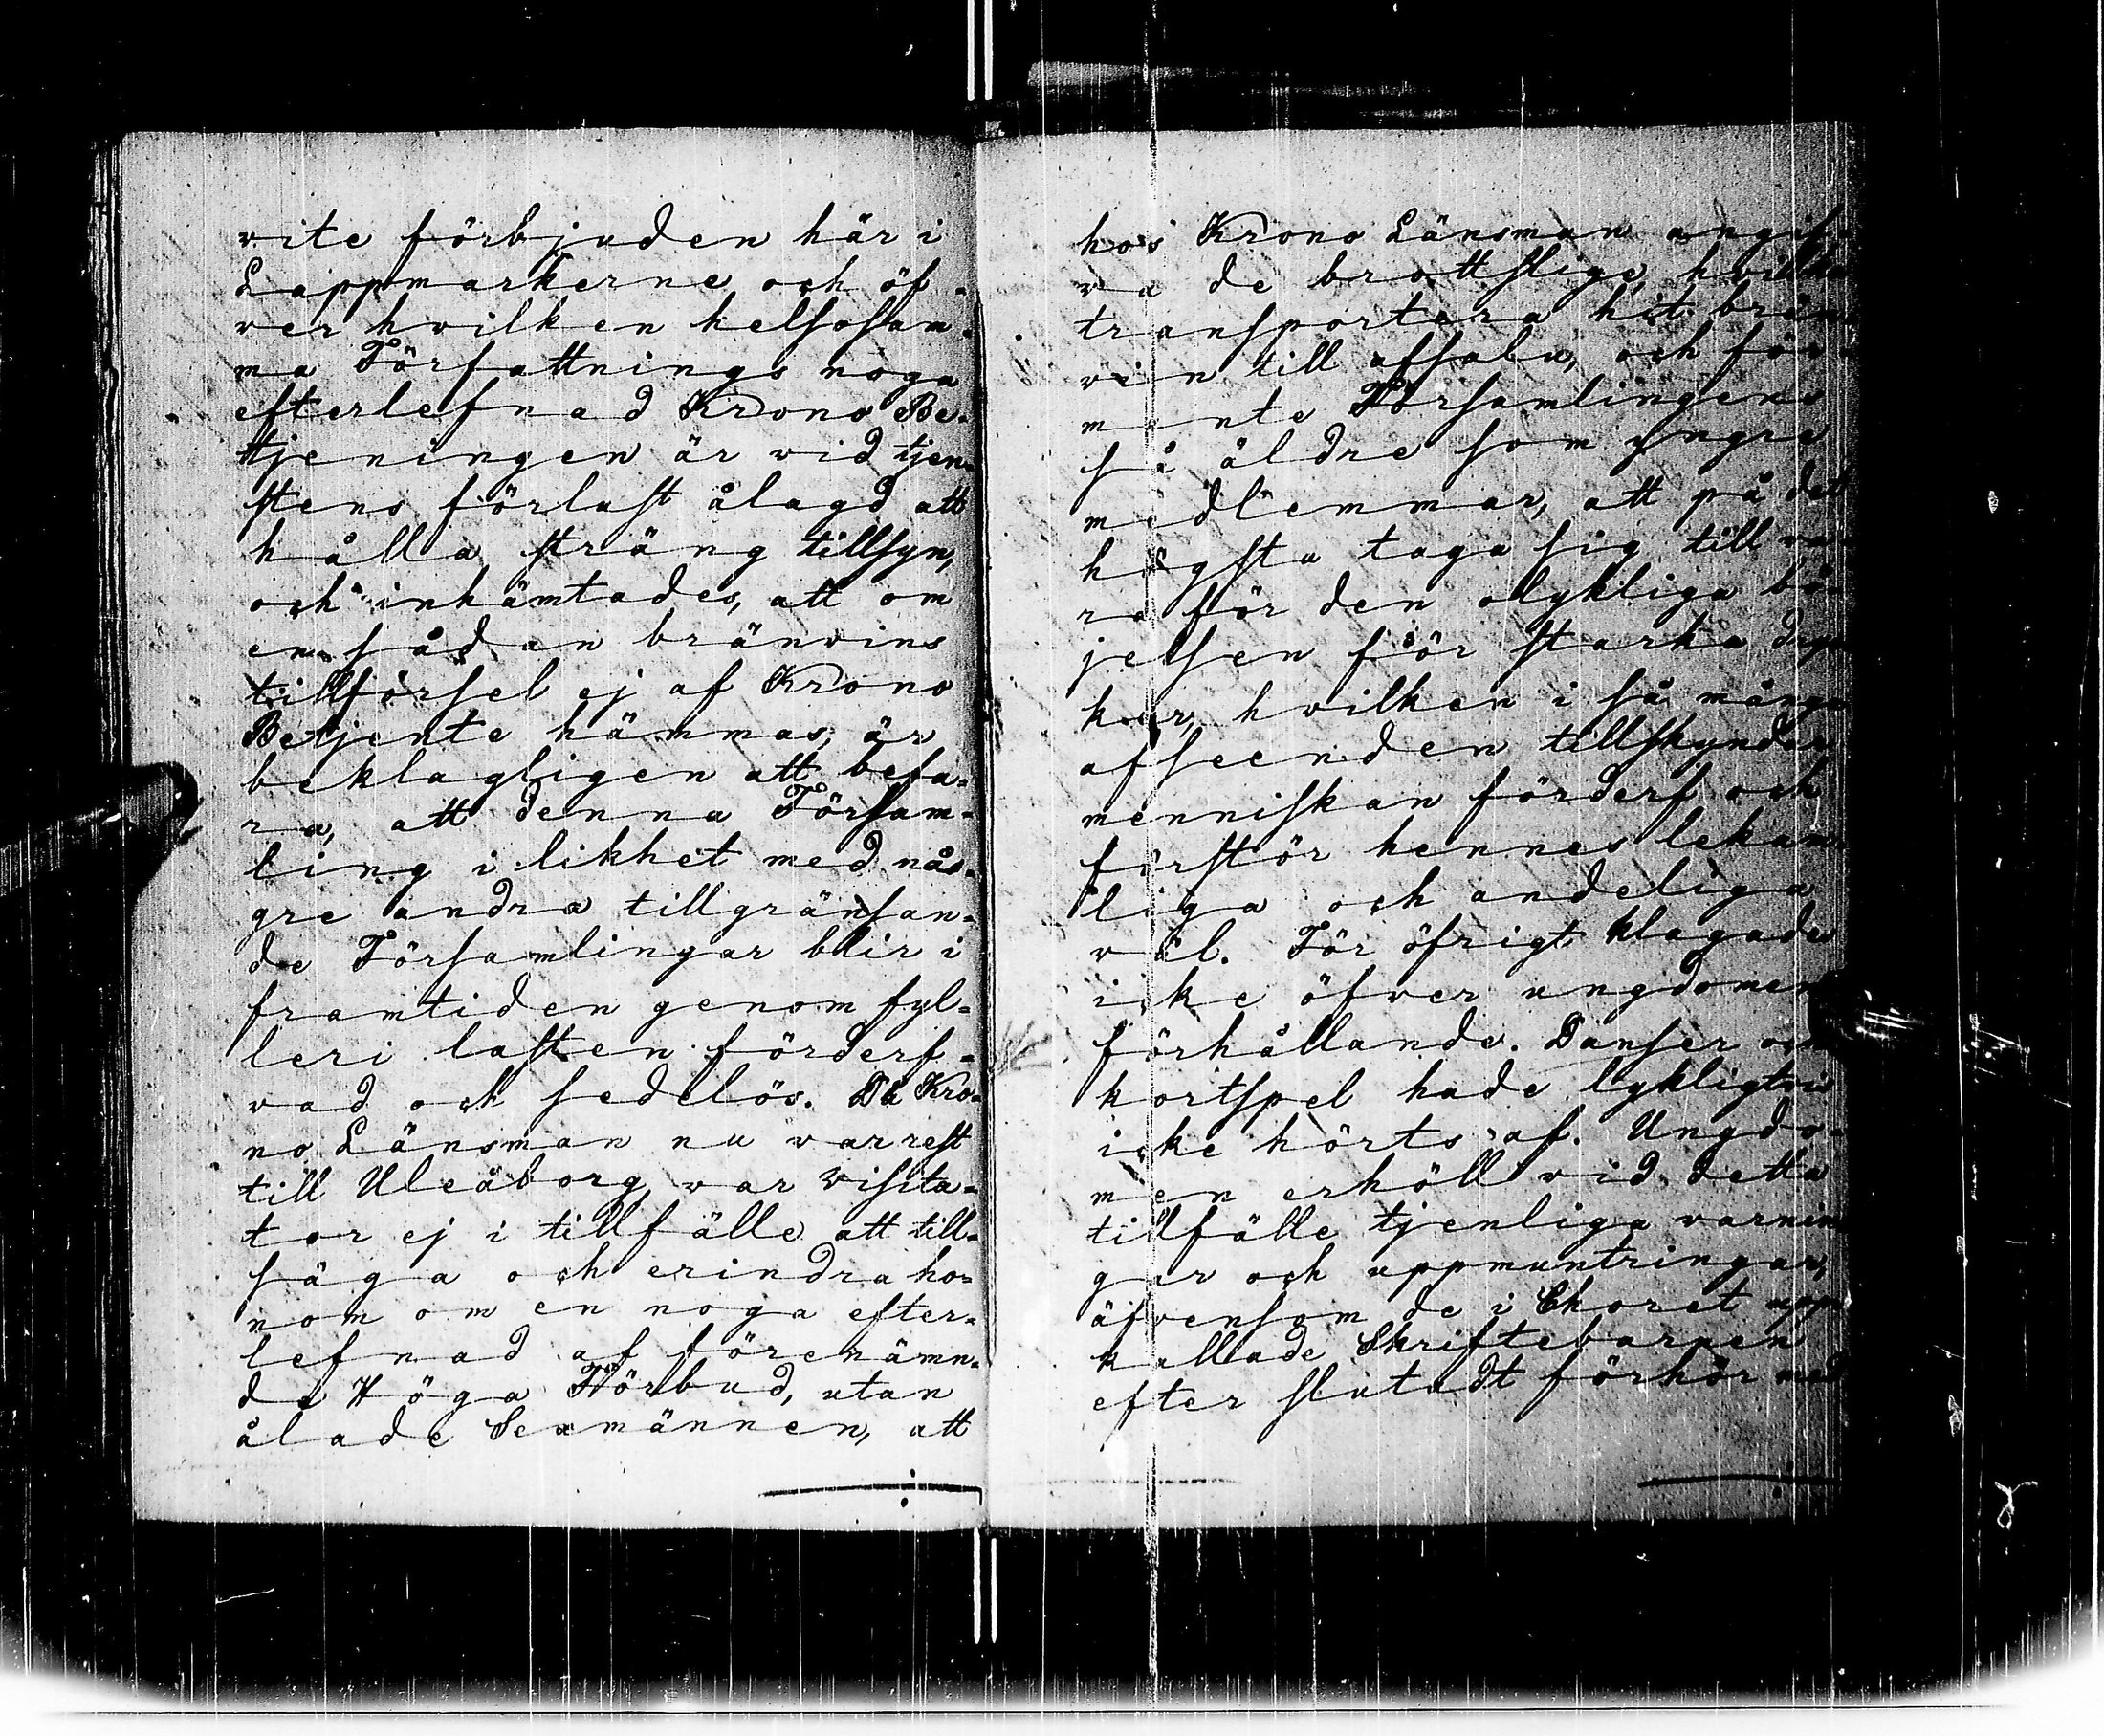 vite förbjuden här i
Lappmarkerne och öf-
ver hvilken helsosam-
ma Författnings noga
efterlefnad Krono Be-
tjeningen är vid tjen-
stens förlust ålagd att
hålla sträng tillsyn,
och inhämtades, att om
en sådan bränvins
tillförsel ej af Krono
Betjente hämmas, är
beklagligen att befa-
ra, att denna Försam-
ling i likhet med nå-
gre andra tillgränsan-
de Församlingar blir i
framtiden genom fyl-
leri lasten förderf-
vad och sedelös. Då Kro-
no Länsman nu var rest
till Uleåborg var Visita-
tor ej i tillfälle att till-
säga och erindra ho-
nom om en noga efter-
lefnad af förenämn-
da Höga Förbud, utan
ålade Sexmännen, att
hos Krono Länsman angif-
va de brottslige, hvilka
transportera hit brän-
vin till afsalu, och för-
mante Församlingens
så äldre som yngre
medlemmar, att på det
högsta taga sig till va-
ra för den olykliga bö-
jelsen för starka dryc-
kor, hvilken i så många
afseenden tillskyndar
menniskan förderf och
förstör hennes lekam-
liga och andeliga
väl. För öfrigt klagades
icke öfver ungdomens
förhållande. Danser och
kortspel hade lykligtvis
icke hörts af. Ungdo-
men erhöll vid detta
tillfälle tjenliga varnin-
gar och uppmuntringar,
äfvensom de i Choret upp-
kallade Skriftebarnen
efter slutadt förhör med